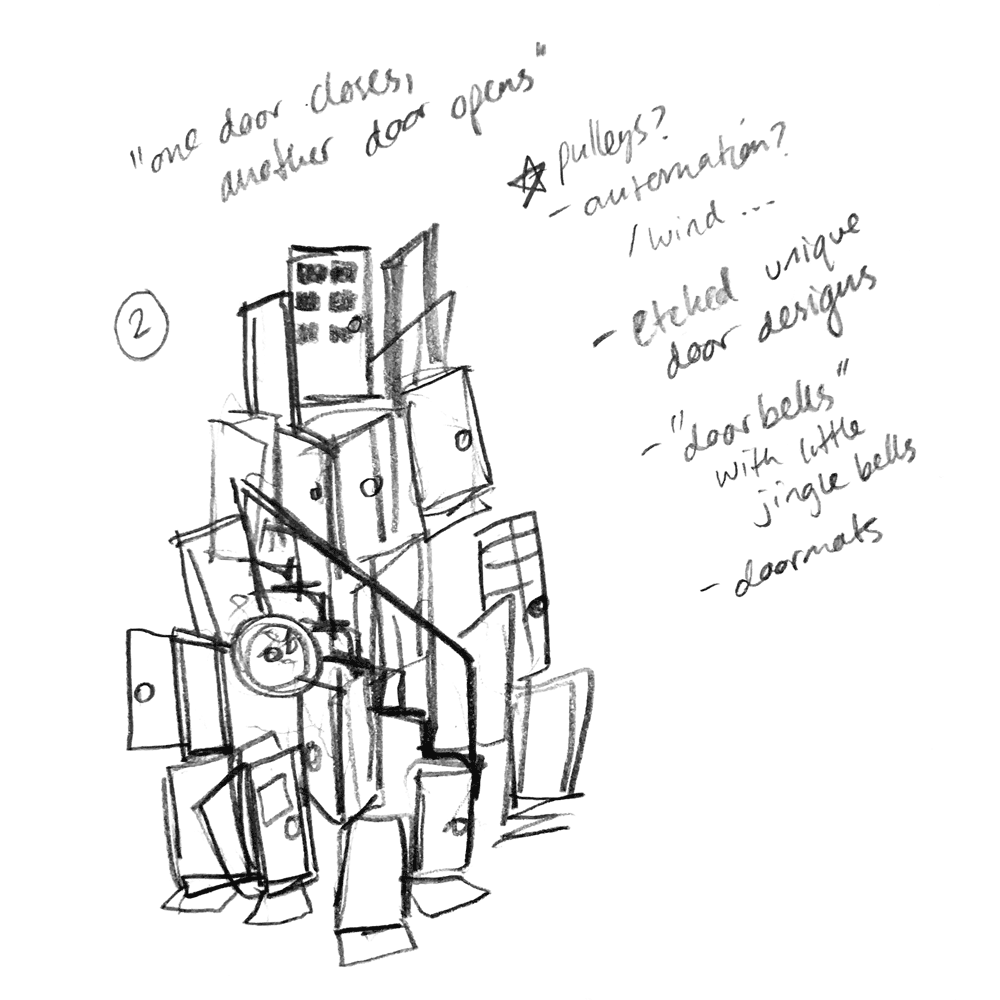 "one door closes,
another door opens"
pulleys?
- automation?
/ wind ...
- etched unique
door designs
- "doorbells"
with little
jingle bells
- doormats
2